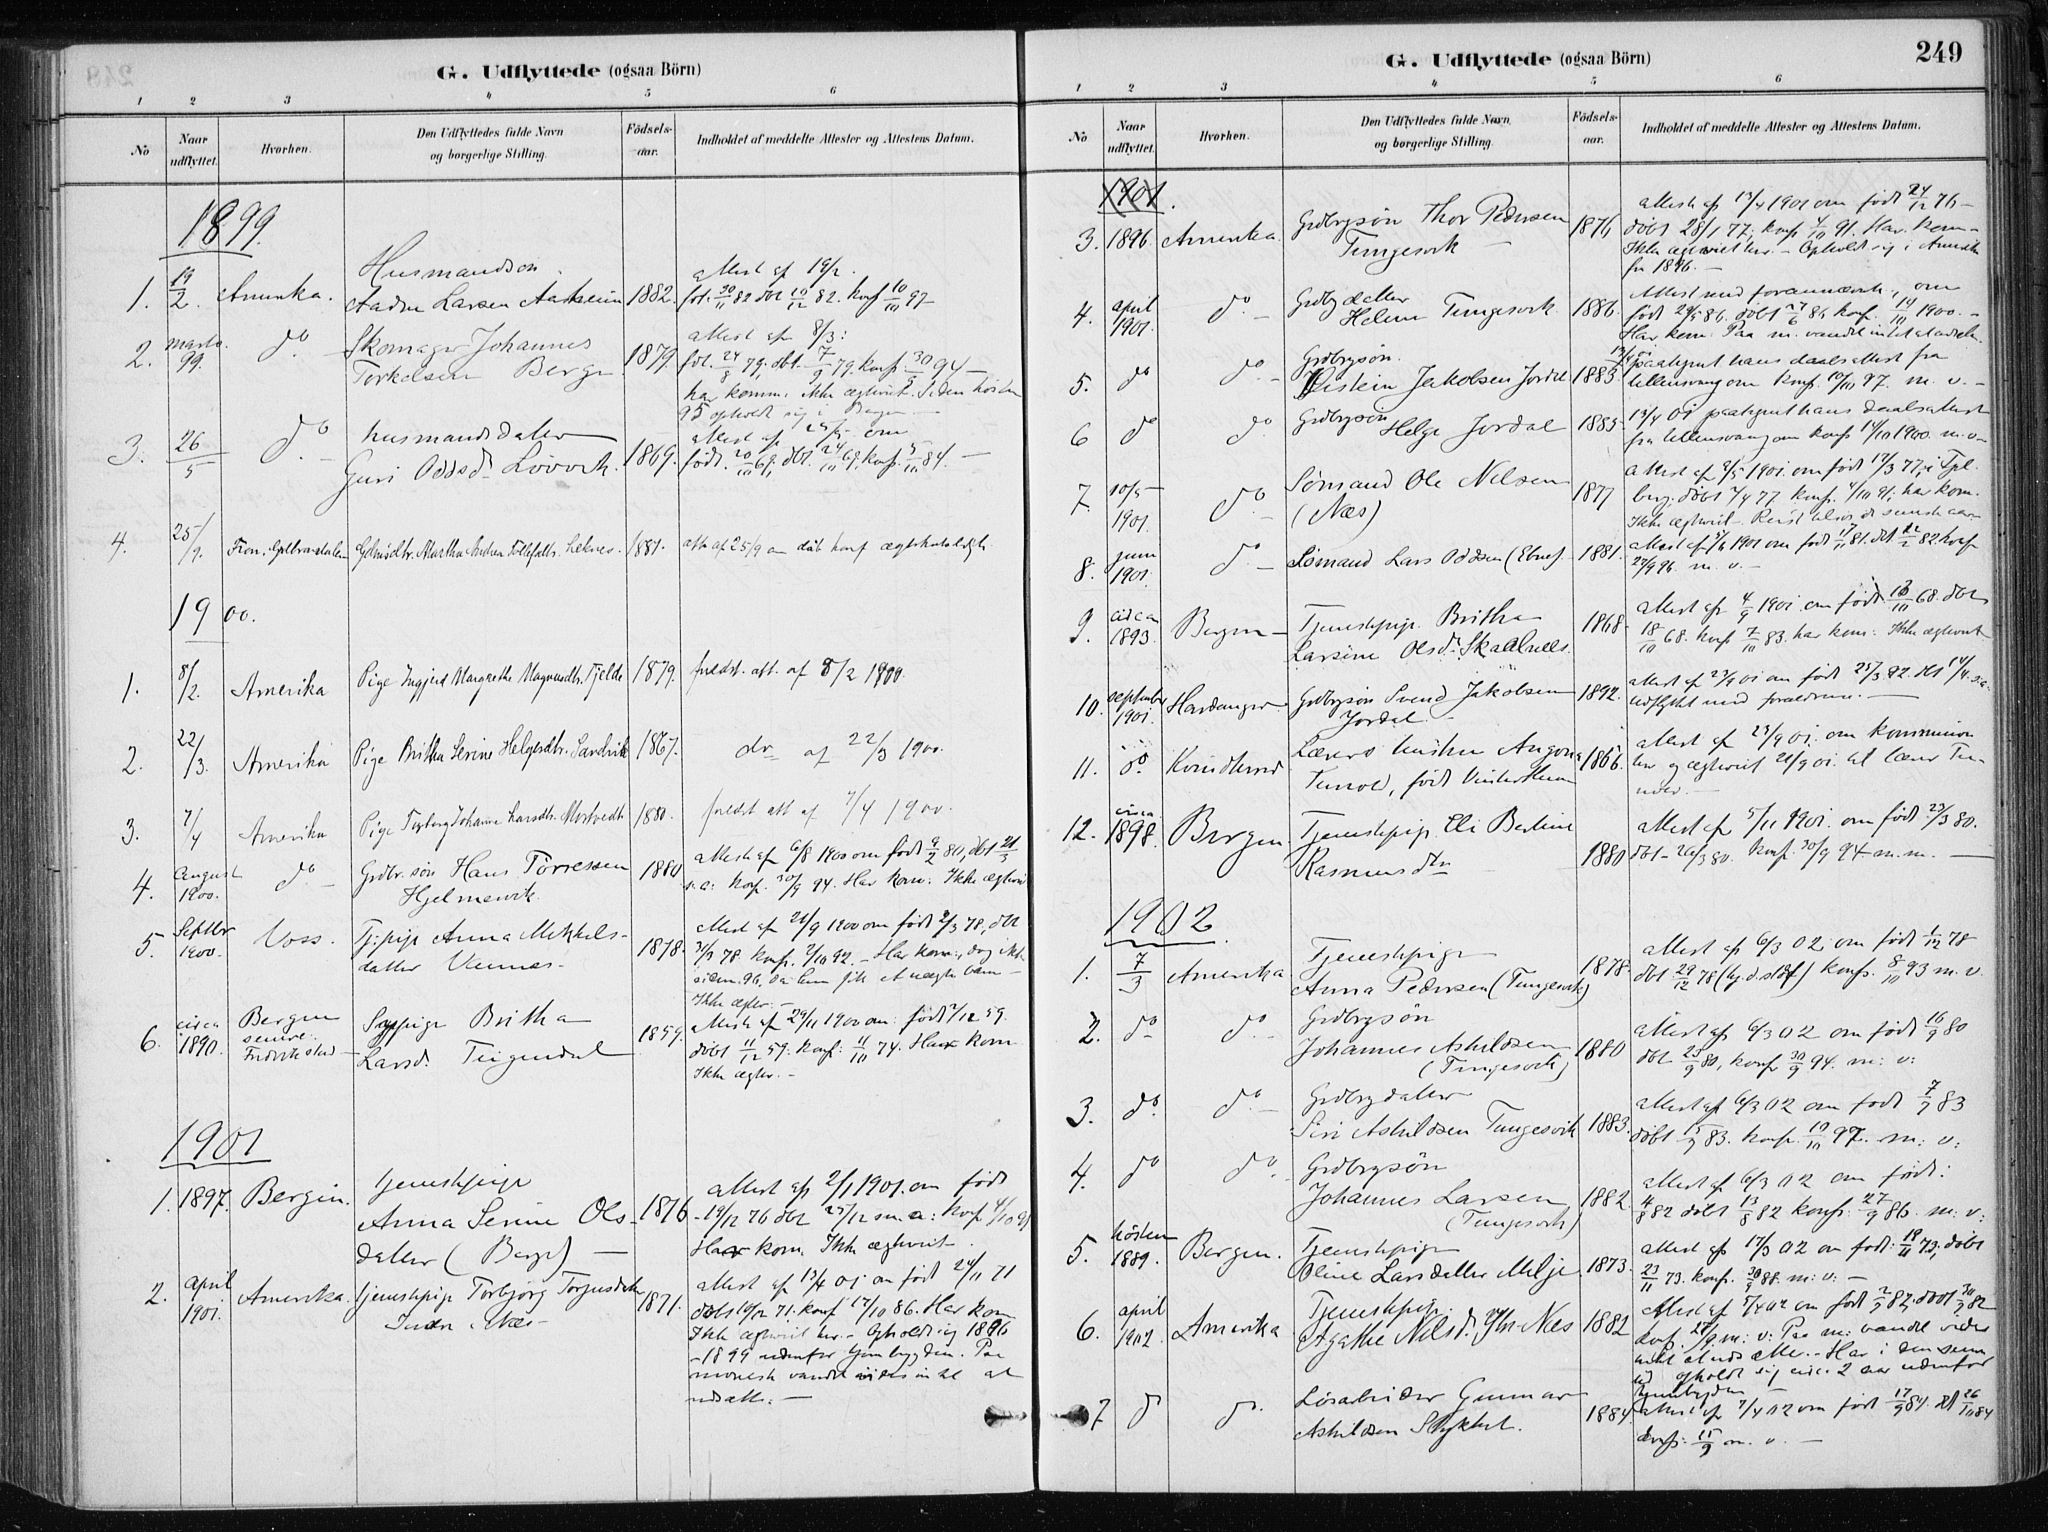 G. Udflyttede (ogsaa Börn)
1 2 3 4 5 6
No
Naar udflyttet.
Hvorhen.
Den Udflyttedes fulde Navn og borgerlige Stilling.
Födsels-aar.
Indholdet af meddelte Attester og Attestens Datum.
1899.
Husmandsön
attest af 19/2.
1. 19/2. Amerika. Aadne Larsen Aakheim 1882. föd. 30/11 82 dbt 10/12 82. konf 10/10 97
attest af 8/3:
2. marts 99. do. Skomager Johannes
Torkelsen Berge 1879. fdt. 24/8 79, dbt. 7/9 79. konf. 30/9 94 –
har komm. ikke ægteviet. Siden hösten
95 opholdt sig i Bergen. —
3. 26/5 do. husmandsdatter
Guri Oddsdr Lövvik. 1869. födt. 20/10 69, dbt. 24/10 69, konf. 5/10 84. —
4. 25/9. Fron, Gulbrandsdalen 1881. att. af 25/9 om dåb konf
1900.
1. 8/2. Amerika Pige Ingjerd Margrethe Magnusdtr. Fjelde 1879. fuldst. att. af 8/2 1900.
2. 22/3. Amerika Pige Britha Serine Helgesdtr. Sandvik 1867. do af 22/3 1900.
3. 7/4 Amerika Pige Torbjørg Johanne Larsdtr. Mostvedt 1880. fuldst att af 7/4 1900.
4. august 1900. do. Grdbr. sön Hans Törressen
Hjelmevik. 1880 attest af 6/8 1900 om födt 9/2 80, dbt 21/3
s. a: konf. 30/9 94. Har kom: Ikke ægteviet
5. Septbr 1900. Voss. Tj.pige Anna Mikkels-
datter Vannes. 1878. attest af 21/9 1900 om födt 2/3 78, dbt
31/3 78 konf. 2/10 92. – Har kom., dog ikke
siden 96, da hun fik et uægte barn –
Ikke ægtev. –
6. circa 1890. Bergen
senere Fredrikstad – Sypige Britha
Larsd. Teigendal 1859. attest af 29/11 1900 om: födt 2/12 59.
döbt 11/12 59. konf: 11/10 74. Har kom
Ikke ægtev. –
1901
1. 1897. Bergen. tjenestpige
Anna Serine Ols-
datter (Berge) — 1876 attest af 2/1 1901. om födt
19/12 76 dbt 25/12 s. a: konf 4/10 91
Har kom. Ikke ægteviet.
2. april 1901. Amerika. tjenestpige Torbjörg Torgersdatter
Indre Næs – 1871. attest af 13/4 01 om födt 24/11 71
döbt 10/12 71. konf 17/10 86. Har kom
Ikke ægteviet her. – Opholdt sig 1896
– 1899 udenfor hjembygden. Paa
moralsk vandel vides intet at
udsætte. —
G. Udflyttede (ogsaa Börn)
249
1 2 3 4 5 6
No
Naar udflyttet.
Hvorhen.
Den Udflyttedes fulde Navn og borgerlige Stilling.
Födsels-aar.
Indholdet af meddelte Attester og Attestens Datum.
1901.
3. 1896. Amerika. Grdbrgsön Thor Pedersen
Tungesvik — 1876 attest af 13/4 1901 om födt 24/12 76 –
döbt 28/1 77, konf 4/10 91. Har kom –
Ikke ægteviet her. – Opholdt sig i Amerika
før 1896. –
4. april 1901. do. Grdbrgdatter
Helene Tungesvik. 1886. Attest med forannævnte, om
födt 29/5 86. döbt 27/6 86 konf. 14/10 1900. –
Har kom. Paa m. vandel intet at udsætte.
5. do do. Grdbrgsön.
Eistein Jakobsen Jordal 1883 13/4 01 paategnet hans daabsattest fra
Ullensvang om konf. 10/10 97. m. v. –
6 do do. Grdbrgsön
Helge Jordal 1885. 13/4 01 paategnet hans daabsattest
fra Ullensvang om konf 14/10 1900. m. v –
7. 10/5 1901. do. Sömand Ole Nilsen
(Næs) 1877 attest af 9/5 1901. om födt 17/3 77, i Fjel-
berg. döbt 2/4 77 konf. 4/10 91. har kom.
Ikke ægteviet – Reist tilsös de seneste aar
8. juni 1901. do. – Sömand Lars Oddsen (Ebne). 1881. attest af 3/6 1901 om födt 17/11 81. dbt 12/2 82. konf
27/9 96. m. v. –
9. circa 1893. Bergen – Tjenestepige. Britha
Larsine Olsdr. Skaalnæs. 1868. attest af 4/9 1901. om födt 10/10 68. döbt
18/10 68. konf 7/10 83. har kom: Ikke ægteviet
10. september 1901. Hardanger. Grdbrgsön Svend Jakobsen
Jordal. – 1892. attest af 23/9 01 om födt 25/3 92. dbt 14/4 s. a.
udflyttet med forældrene. —
11. do. Lærers hustru
födt 1866. attest af 23/9 01. om kommunion
her og ægteviet 21/9 01. til lærer
12. circa 1898. Bergen. Tjenestepige. Eli Bertine
Rasmusdtr 1880 attest af 5/11 1901. om födt 23/3 80.
dbt – 26/3 80. konf. 30/9 94. m. m. —
1902.
1. 7/3 Amerika Tjenestpige
Anna Pedersen (Tungesvik) 1878. attest af 6/3 02, om födt 1/12 78
dbt 29/12 78 konf. 8/10 93 m. v.
2. do do. Grdbrgsön
Johannes Askildsen
(Tungesvik) 1880 attest af 6/3 02 om födt 16/9 80
dbt. 25/9 80, konf 30/9 94. m: v:
3. do. do. – Grdbrgdatter
Siri Askildsen Tungesvik 1883. attest af 6/3 02 om födt 7/7 83
döbt 15/7 83. konf. 10/10 97. m: v:
4. do do. Grdbrgsön
Johannes Larsen
(Tungesvik) 1882. attest af 6/3 02 om födt:
4/8 82 döbt 13/8 82 konf: 27/9 86. m: v:
5. hösten 1889. Bergen. Tjenestepige
Oline Larsdatter Milje. 1873. attest af 17/3 02 om födt: 18/11 73, döbt
23/11 73. konf. 30/9 88. m: v: –
6. april 1902. Amerika. Tjenestpige.
Agathe Nilsd. Ytre Næs 1882 Attest af 7/4 02 om födt 2/7 82. döbt 30/7 82
konf. 27/9 m: v: Paa m: vandel vides
intet at udsætte. – Har i den senere
tid opholdt sig circa 2 aar udenfor
hjembygden
7 do do. Lösarbeider Gunnar
Askildsen 1884 attest af 7/4 02 om födt 17/9 84. dbt 26/10 84
konf: 15/9 m. v. –